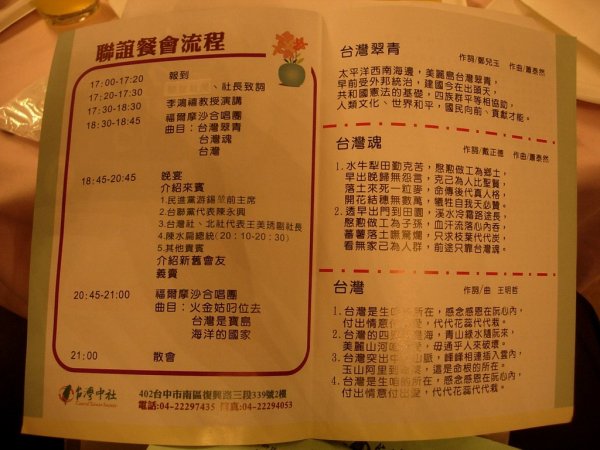 聯誼餐會流程
17:00-17:20 報到
17:20-17:30 社長致詞
17:30-18:30 李鴻禧教授演講
18:30-18:45 福爾摩沙合唱團
曲目：台灣翠青
台灣魂
台灣
18:45-20:45 晚宴
介紹來賓
1.民進黨游錫堃前主席
2.台聯黨代表陳永興
3.台灣社、北社代表王美琇副社長
4.陳水扁總統(20：10-20：30)
5.其他貴賓
介紹新舊會友
義賣
20:45-21:00 福爾摩沙合唱團
曲目：火金姑叼位去
台灣是寶島
海洋的國家
21:00 散會
台灣中社
Central Taiwan Society
402台中市南區復興路三段339號2樓
電話:04-22297435 傳真:04-22294053
台灣翠青 作詞/鄭兒玉 作曲/蕭泰然
太平洋西南海邊，美麗島台灣翠青，
早前受外邦統治，建國今在出頭天，
共和國憲法的基礎，四族群平等相協助，
人類文化、世界和平，國民向前、貢獻才能。
台灣魂 作詞/戴正德 作曲/蕭泰然
1.水牛犁田勤克苦，慇懃做工為鄉土，
早出晚歸無怨言，克己為人比聖賢，
落土來死一粒麥，命傳後代真人格，
開花結穗無數萬，犧牲自我天必贊。
2.透早出門到田園，溪水冷霜路途長，
慇懃做工為子孫，血汗流落心內吞，
蕃薯落土嘸驚爛，只求枝葉代代炭，
看無家己為人群，前途只靠台灣魂。
台灣 作詞/曲 王明哲
1.台灣是生咱的所在，感念感恩在阮心內，
付出情意付出愛，代代花蕊代代栽。
2.台灣的四面是海，青山綠水隨阮來，
美麗山河，毋通乎人來破壞。
3.台灣突出中央山脈，峰峰相連插入雲內，
玉山阿里，這是命根的所在。
4.台灣是生咱的所在，感念感恩在阮心內，
付出情意付出愛，代代花蕊代代栽。